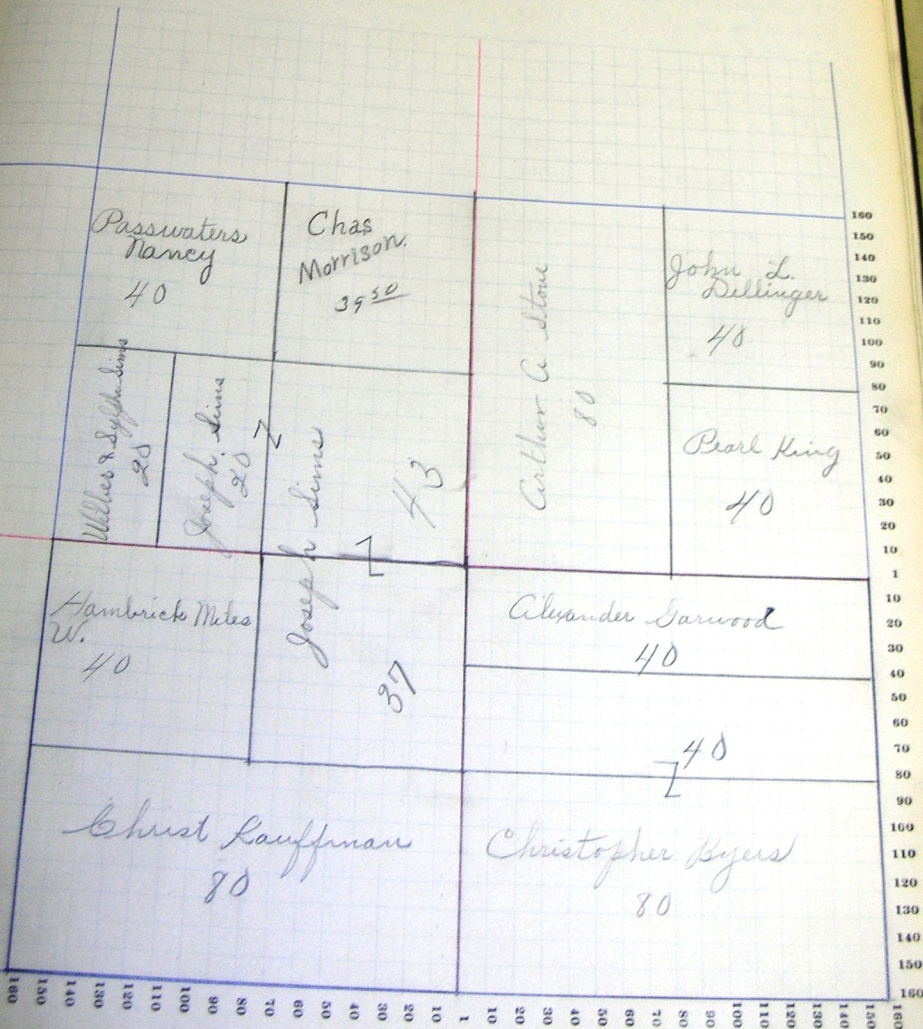 Passwaters
Nancy
40
Chas
Morrison.
39 50
Arthur A Stone
80
John L.
Dellinger
40
Pearl King
40
Wilber & Sylvia Sims
20
Joseph Sims
20
Joseph Sims
43
37
Hambrick Miles
W.
40
Alexander Garwood
40
40
Christ Kauffman
80
Christopher Byers
80
160
150
140
130
120
110
100
90
80
70
60
50
40
30
20
10
1
10
20
30
40
50
60
70
80
90
100
110
120
130
140
150
160
160 150 140 130 120 110 100 90 80 70 60 50 40 30 20 10 1 10 20 30 40 50 60 70 80 90 100 110 120 130 140 150 160